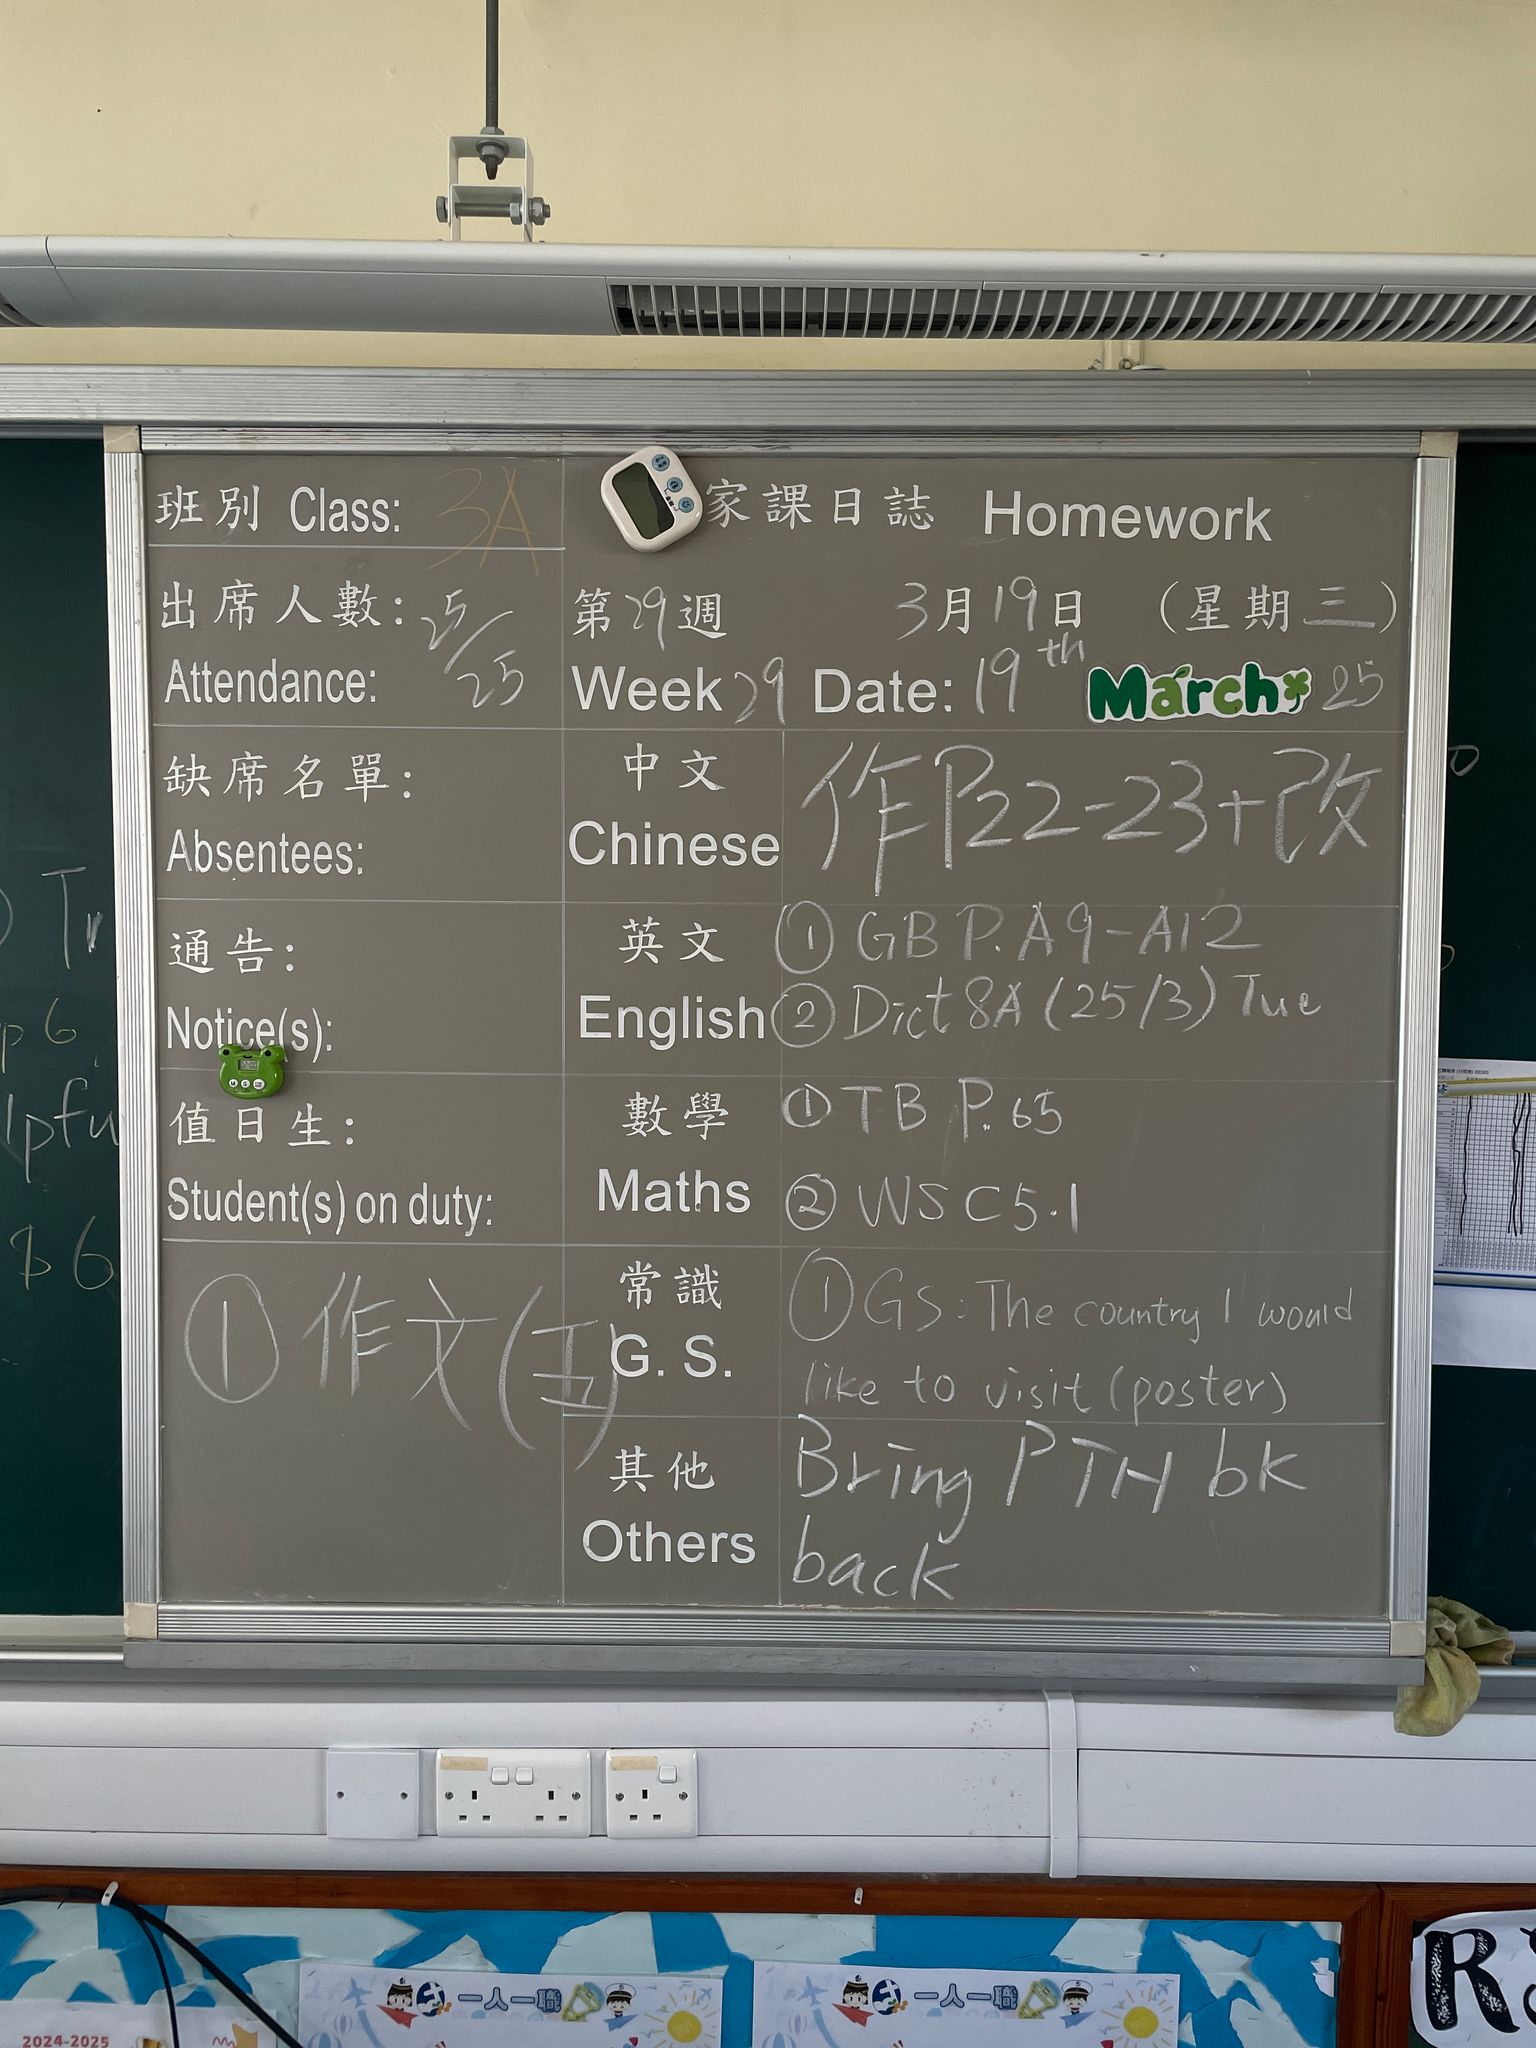 班別 Class: 3A
家課日誌 Homework
出席人數: 25/25
Attendance:
第29週 3月19日 (星期三)
Week 29 Date: 19th March 25
缺席名單:
Absentees:
中文
Chinese
作P22-23+改
通告:
Notice(s):
英文
English
① GB P.A9-A12
② Dict 8A (25/3) Tue
值日生:
Student(s) on duty:
數學
Maths
① TB P.65
② WS C5.1
① 作文(五)
常識
G. S.
① GS: The country I would
like to visit (poster)
其他
Others
Bring PTH bk
back
Tr
p6
lpfu
$6
一人一職
一人一職
2024-2025
R